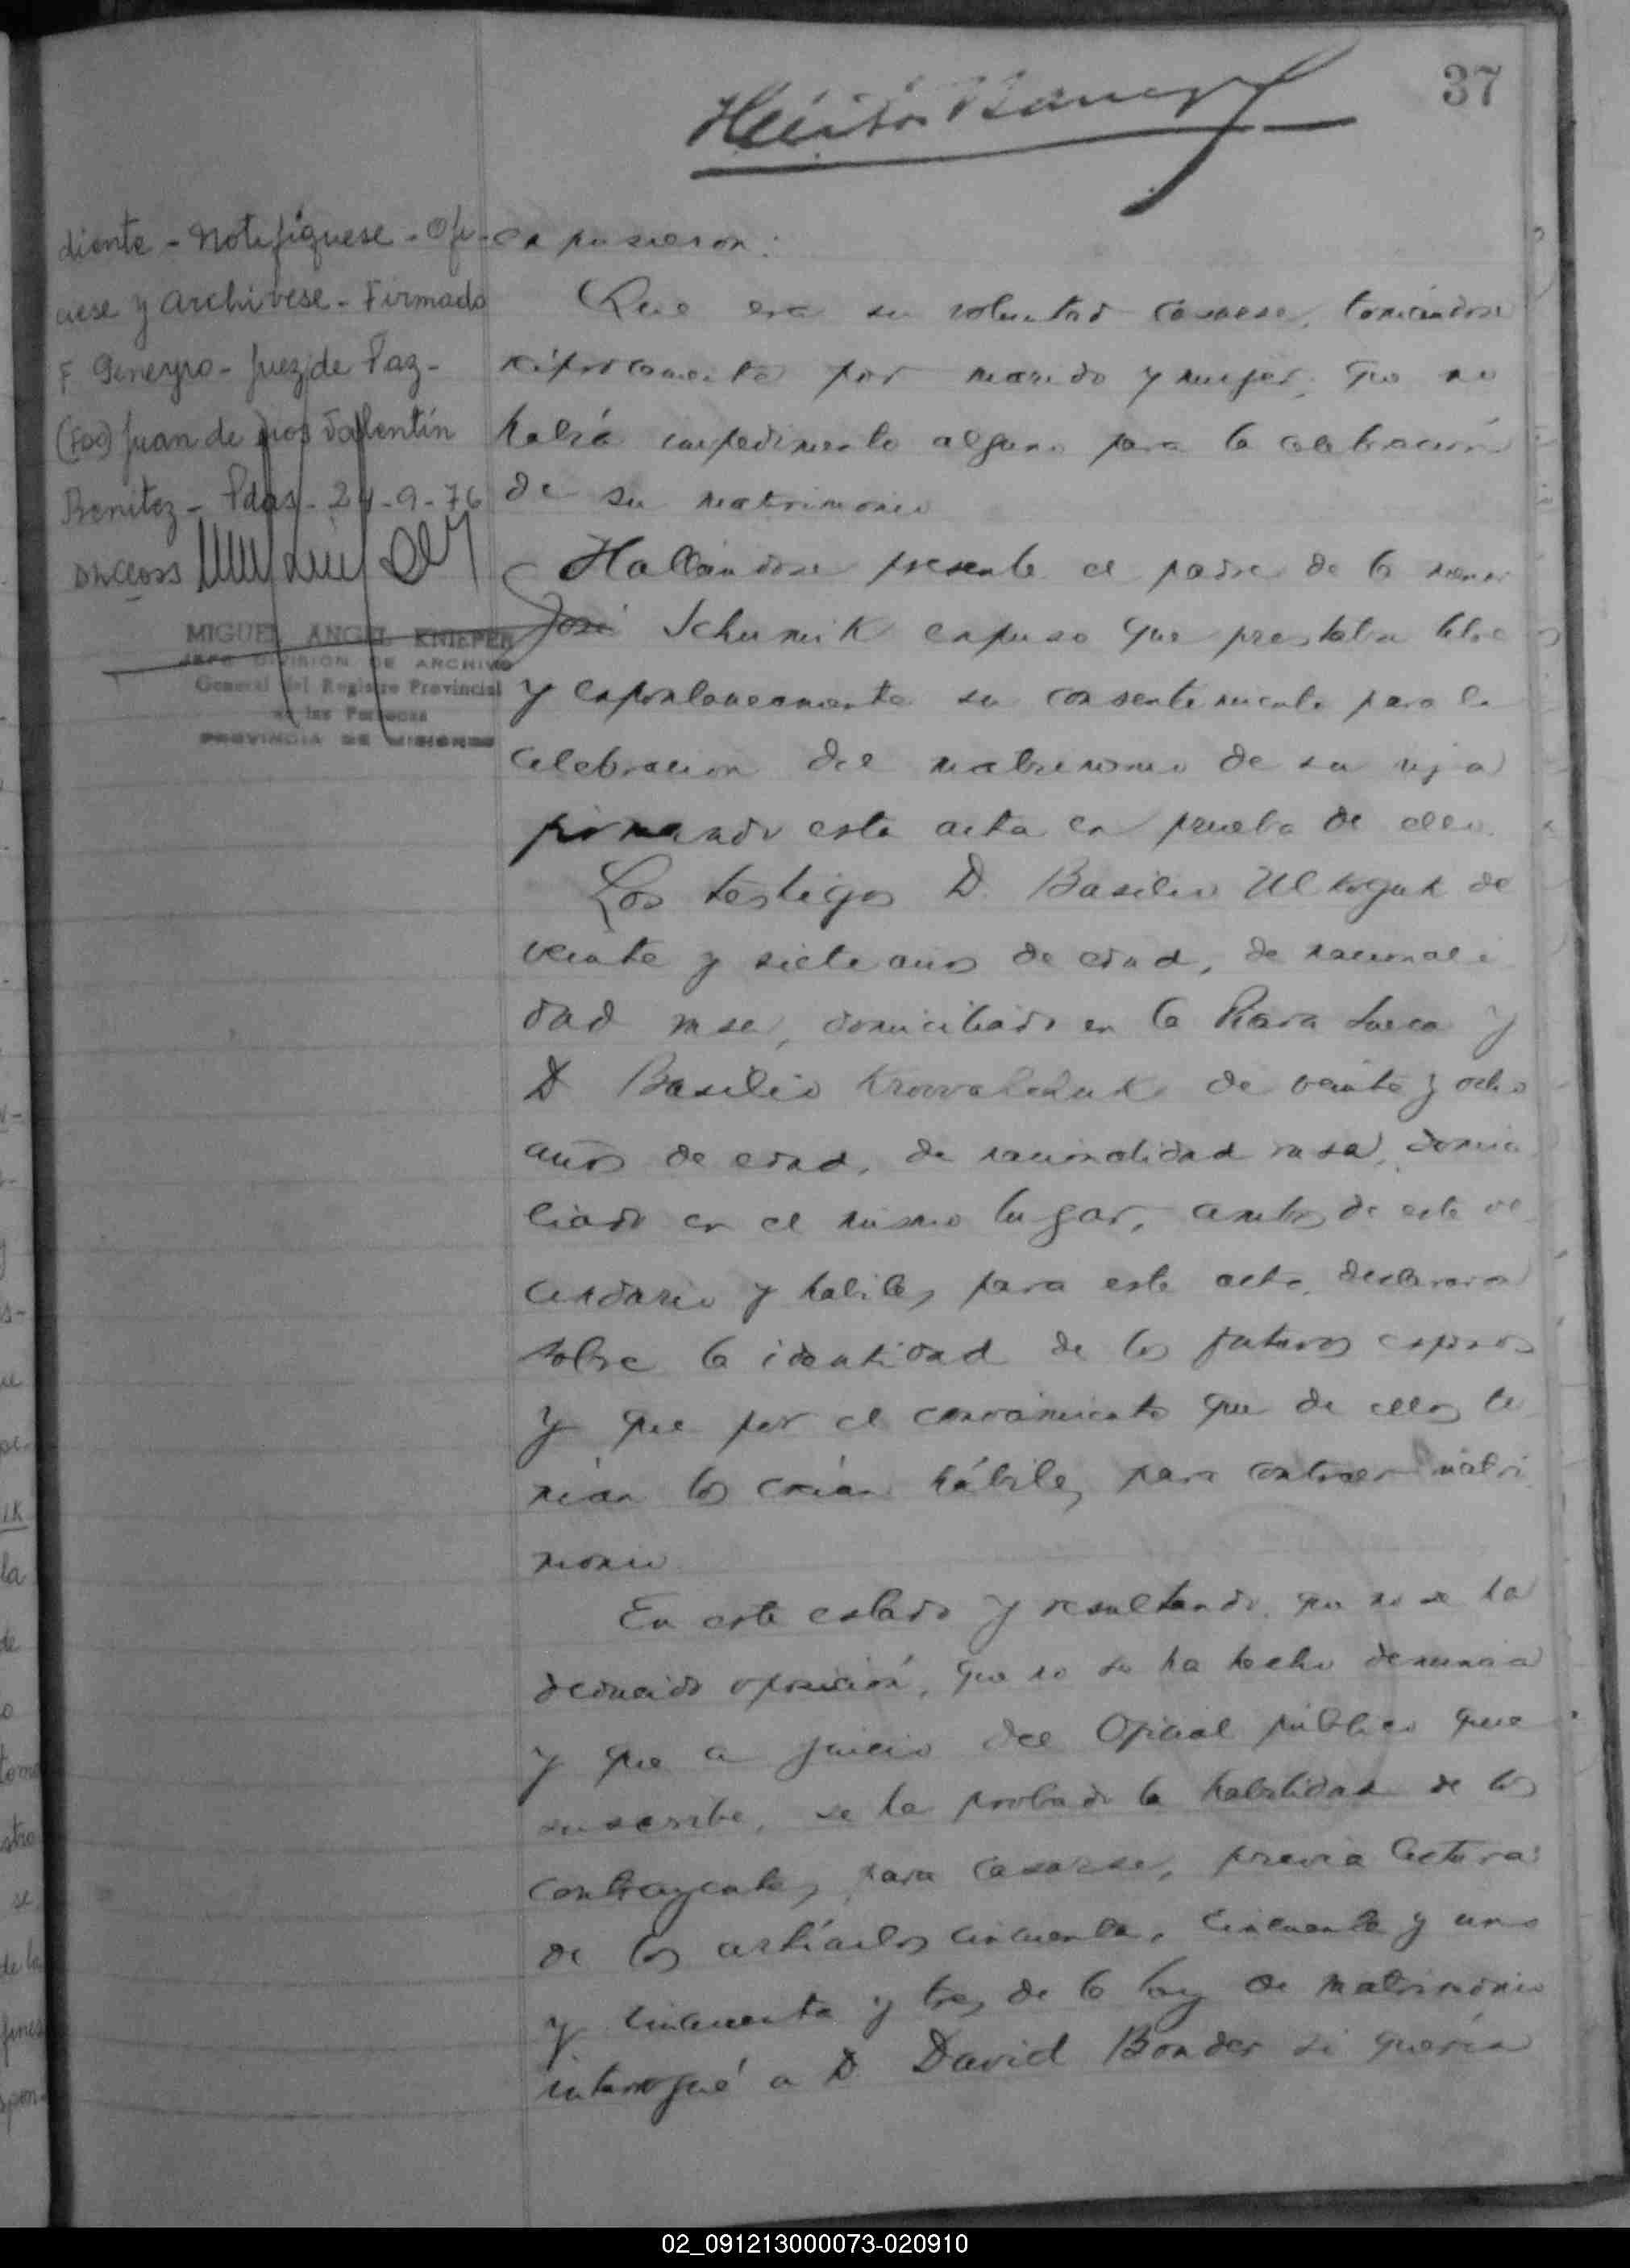 37
diente - Notifíquese - Ofi-
ciese y archívese - Firmado
F. Geneyro - Juez de Paz -
(Fdo) Juan de Dios Valentín
Benitez - Pdas - 24-9-76
MIGUEL ANGEL KNIEPER
JEFE DIVISION DE ARCHIVO
General del Registro Provincial
de las Personas
PROVINCIA DE MISIONES
expusieron:
Que era su voluntad casarse, tomándose
recíprocamente por marido y mujer, que no
había impedimento alguno para la celebración
de su matrimonio
Hallándose presente el padre de la menor
José Schumik expuso que prestaba libre
y espontaneamente su consentimiento para la
celebracion del matrimonio de su hija
firmando esta acta en prueba de ello.
Los testigos D. Basilio de
veinte y siete años de edad, de nacionali
dad rusa, domiciliado en la Picada Sueca y
D Basilio de veinte y ocho
años de edad, de nacionalidad rusa, domici
liado en el mismo lugar, ambos de este ve
cindario y habiles para este acto, declararon
sobre la identidad de los futuros esposos
y que por el conocimiento que de ellos te
nian los creían hábiles para contraer matri
monio
En este estado y resultando que no se ha
deducido oposición, que no se ha hecho denuncia
y que a juicio del Oficial público que
suscribe, se ha probado la habilidad de los
contrayentes para casarse, previa lectura
de los artículos cincuenta, cincuenta y uno
y cincuenta y tres de la ley de matrimonio
interrogué a D David Bonder si quería
02_091213000073-020910